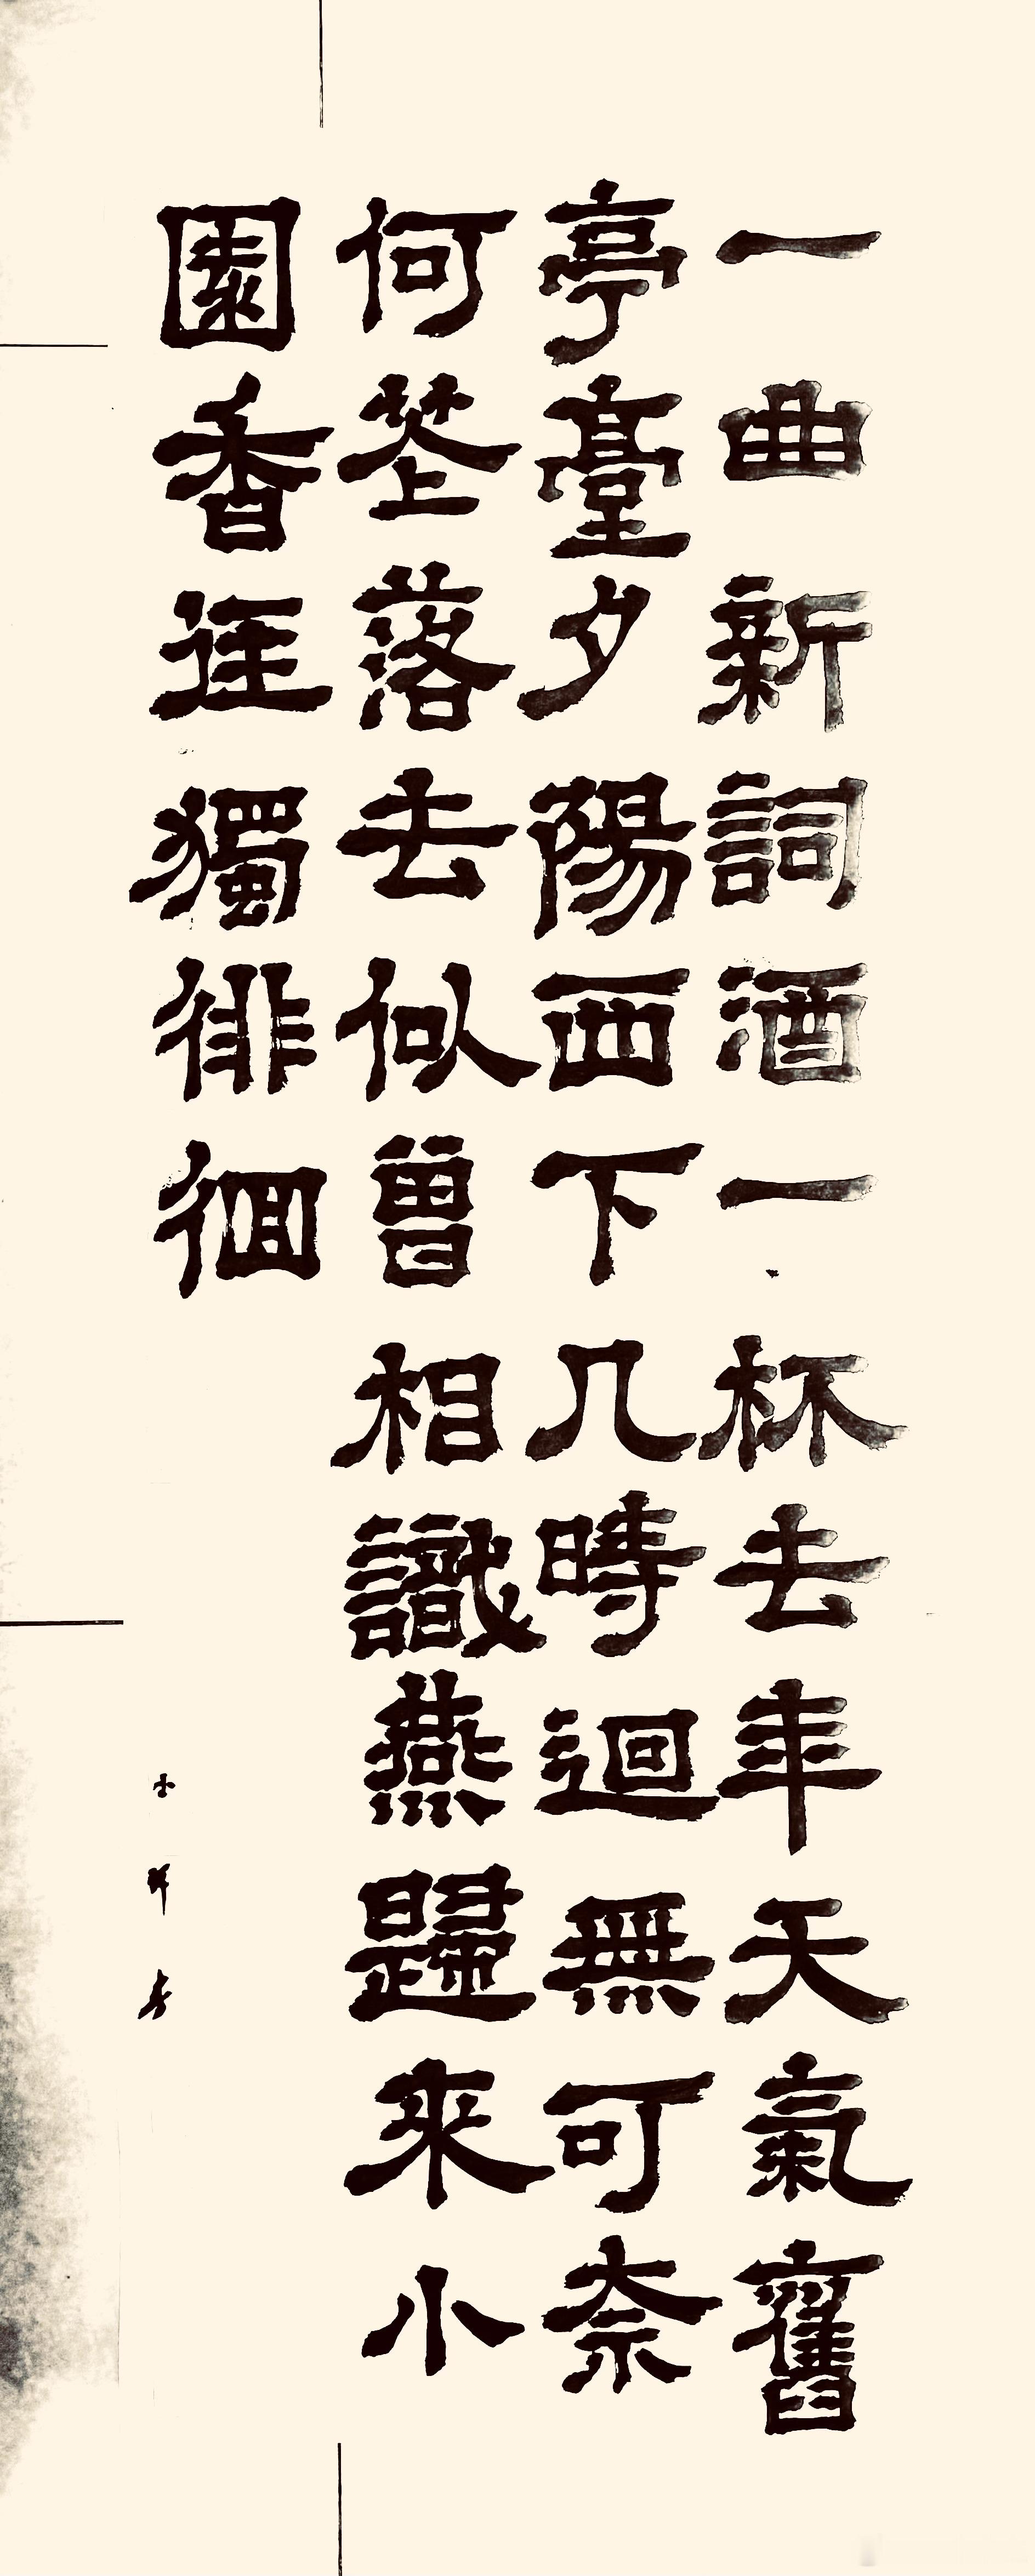 一曲新詞酒一杯去年天氣舊
亭臺夕陽西下几時迴無可奈
何花落去似曾相識燕歸來小
園香徑獨徘徊